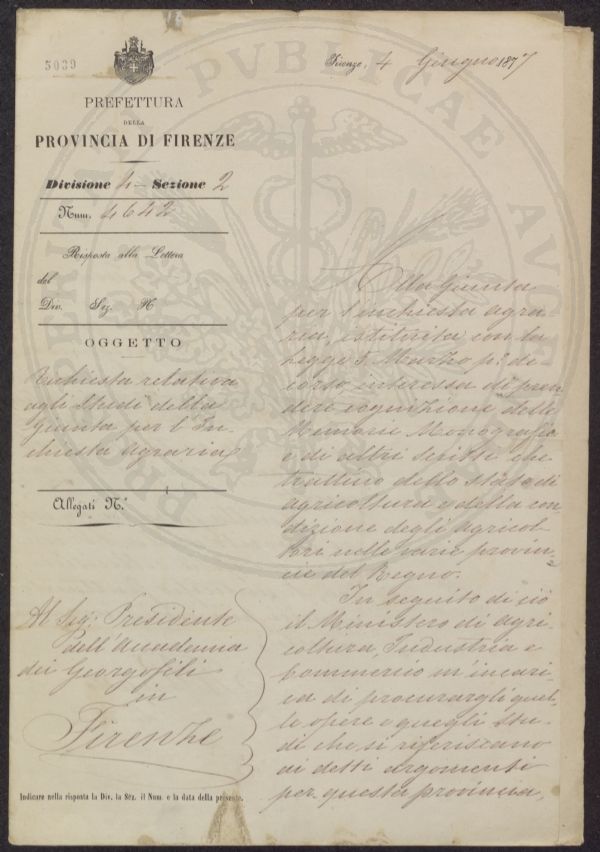 5039
PREFETTURA
DELLA
PROVINCIA DI FIRENZE
Divisione 4 - Sezione 2
Num. 4642
Risposta alla Lettera
del
Div. Sez. N
OGGETTO
Richiesta relativa
agli Studi della
Giunta per l'In-
chiesta agraria
Allegati N.°
Al Sig. Presidente
dell'Accademia
dei Georgofili
in
Firenze
Indicare nella risposta la Div. la Sez. il Num. e la data della presente.
Firenze, 4 Giugno 1877
Alla Giunta
per l'inchiesta agra
ria, istituita con la
Legge 5 Marzo p.° de-
corso, interessa di pren
dere cognizione delle
Memorie Monografie
e di altri scritti che
trattino dello stato di
agricoltura e della con
dizione degli agricol
tori nelle varie provin-
cie del Regno.
In seguito di ciò
il Ministero di agri
coltura Industria e
Commercio m'incari
ca di procurargli quel-
le opere o quegli stu-
di che si riferiscano
ai detti argomenti
per questa provincia,
PVBLICAE